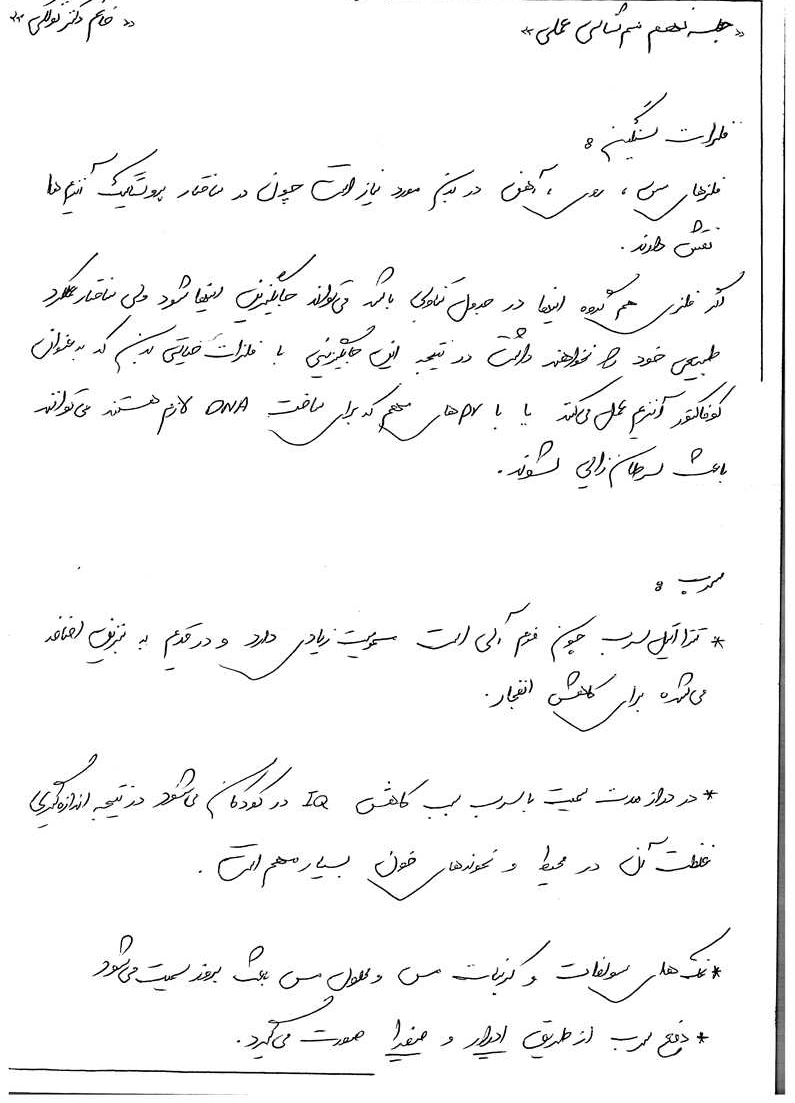 «جلسه نهم سم شناسی عملی»
«خانم دکتر توکلی»
فلزات سنگین :
فلزهای مس ، روی ، آهن در بدنم مورد نیاز است چون در ساختار پروستتیک آنزیم ها
نقش دارند .
اگر فلزی هم گروه اینها در جدول تناوبی باشد می‌تواند جایگزین اینها شود ولی ساختار عملکرد
طبیعی خود را نخواهند داشت در نتیجه این جایگزینی با فلزات حیاتی بدن که به عنوان
کوفاکتور آنزیم عمل می‌کند یا با های مهم که برای ساخت DNA لازم هستند می‌توانند
باعث سرطان زایی شوند .
سرب :
* تترا اتیل سرب چون فرم آلی است سمیت زیادی دارد و در قدیم به بنزین اضافه
می‌شده برای کاهش انفجار .
* در دراز مدت سمیت با سرب سبب کاهش IQ در کودکان می‌شود در نتیجه اندازه‌گیری
غلظت آن در محیط و نمونه‌های خون بسیار مهم است .
* نمک های سولفات و کربنات مس و محلول مس باعث بروز سمیت می‌شود
* دفع سرب از طریق ادرار و صفرا صورت می‌گیرد .